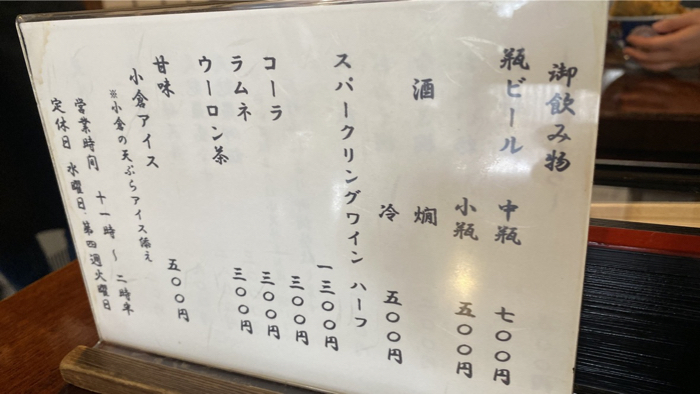 御飲み物
瓶ビール 中瓶 七〇〇円
小瓶 五〇〇円
酒 燗
冷 五〇〇円
スパークリングワイン ハーフ
一三〇〇円
コーラ 三〇〇円
ラムネ 三〇〇円
ウーロン茶 三〇〇円
甘味
小倉アイス 五〇〇円
※小倉の天ぷらアイス添え
営業時間 十一時〜二時半
定休日 水曜日・第四週火曜日